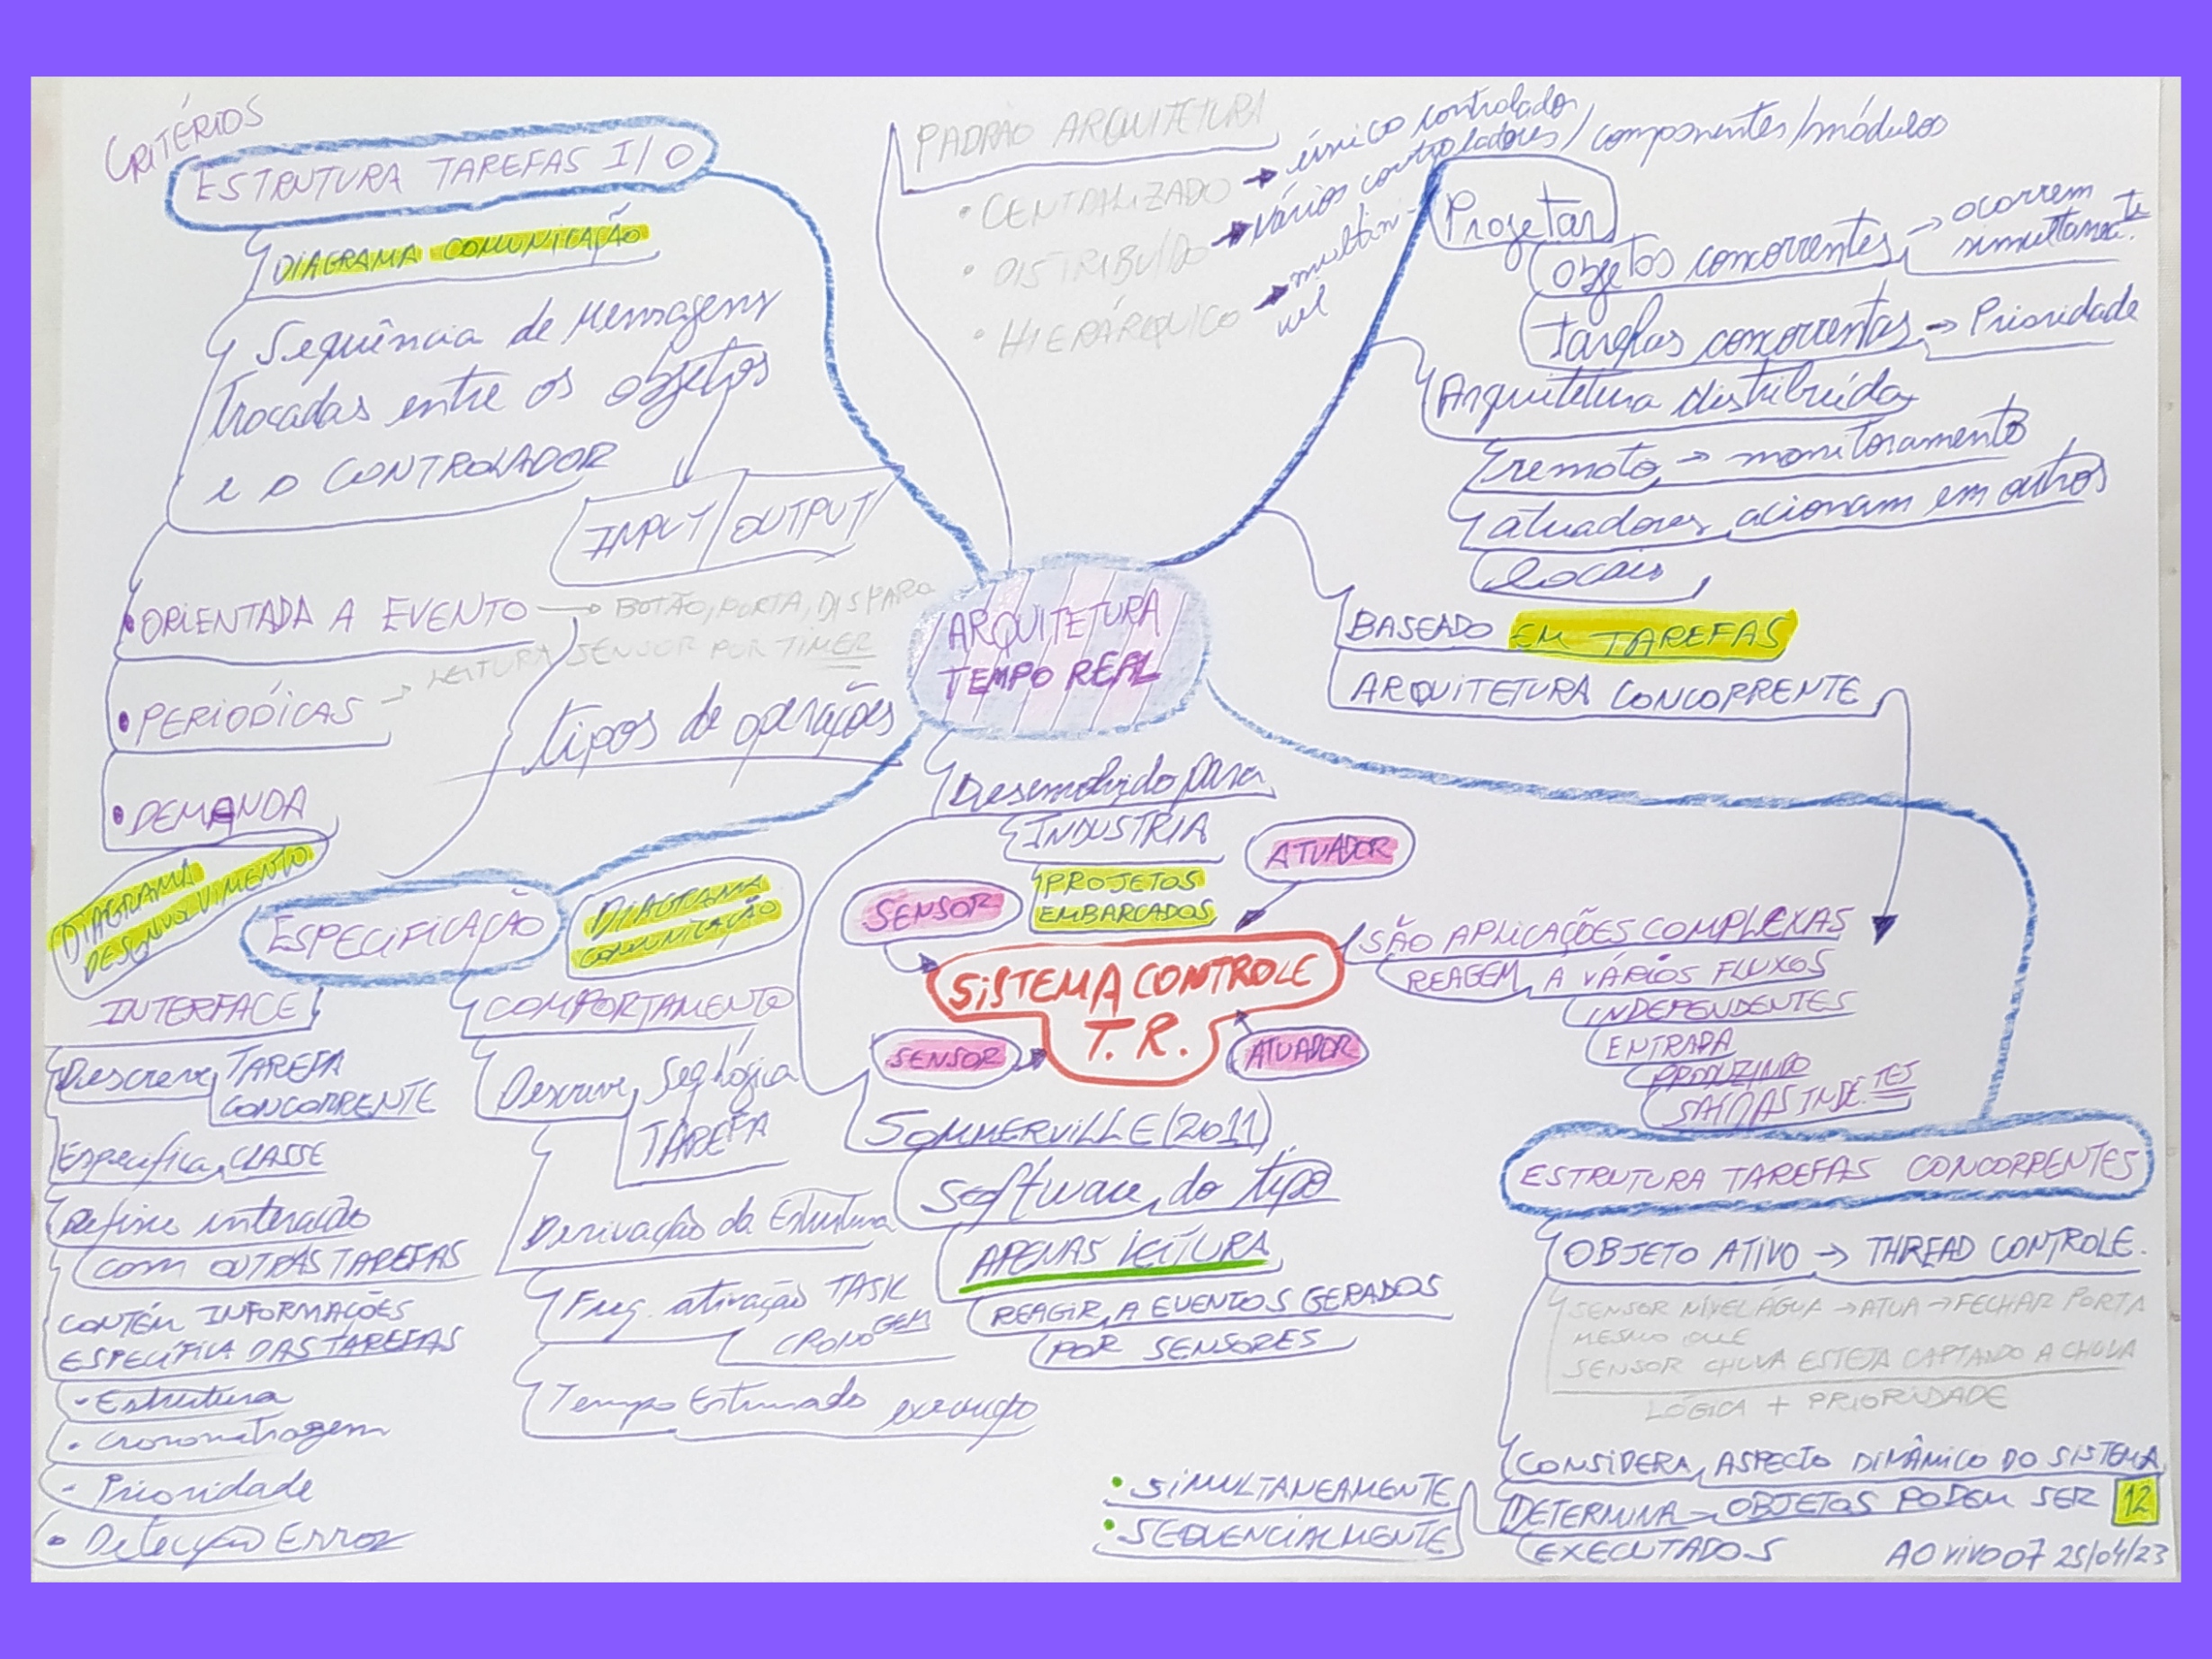 CRITÉRIOS
ESTRUTURA TAREFAS I/O
DIAGRAMA COMUNICAÇÃO
Sequência de Mensagens
trocadas entre os objetos
e o CONTROLADOR
INPUT/OUTPUT
• ORIENTADA A EVENTO → BOTÃO, PORTA, DISPARO
• PERIÓDICAS → LEITURA SENSOR POR TIMER
• DEMANDA
tipos de operações
PADRÃO ARQUITETURA
• CENTRALIZADO → único controlador
• DISTRIBUÍDO → vários controladores/componentes/módulos
• HIERÁRQUICO → multiní-
vel
Projetar
objetos concorrentes → ocorrem
simultanea.te
tarefas concorrentes → Prioridade
Arquitetura distribuída
remoto → monitoramento
atuadores acionam em outros
locais
BASEADO EM TAREFAS
ARQUITETURA CONCORRENTE
ARQUITETURA
TEMPO REAL
Desenvolvido para
INDUSTRIA
PROJETOS
EMBARCADOS
ATUADOR
SENSOR
SISTEMA CONTROLE
T.R.
SENSOR
ATUADOR
SÃO APLICAÇÕES COMPLEXAS
REAGEM A VÁRIOS FLUXOS
INDEPENDENTES
ENTRADA
PRODUZINDO
SAÍDAS INDE.TES
SOMMERVILLE (2011)
Software do tipo
APENAS LEITURA
REAGIR A EVENTOS GERADOS
POR SENSORES
DIAGRAMA
DESENVOLVIMENTO
ESPECIFICAÇÃO
DIAGRAMA
COMUNICAÇÃO
INTERFACE
Descreve TAREFA
CONCORRENTE
Especifica CLASSE
Define interação
com OUTRAS TAREFAS
CONTÉM INFORMAÇÕES
ESPECÍFICA DAS TAREFAS
- Estrutura
• Cronometragem
- Prioridade
• Detecção Error
COMPORTAMENTO
Descreve Seq lógica
TAREFA
Derivação da Estrutura
Freq. ativação TASK
CRONOGEM
Tempo Estimado execução
ESTRUTURA TAREFAS CONCORRENTES
OBJETO ATIVO → THREAD CONTROLE.
SENSOR NÍVEL ÁGUA → ATUA → FECHAR PORTA
MESMO QUE
SENSOR CHUVA ESTEJA CAPTANDO A CHUVA
LÓGICA + PRIORIDADE
CONSIDERA ASPECTO DINÂMICO DO SISTEMA
DETERMINA → OBJETOS PODEM SER
EXECUTADOS
• SIMULTANEAMENTE
• SEQUENCIALMENTE
12
AO VIVO 07 25/04/23